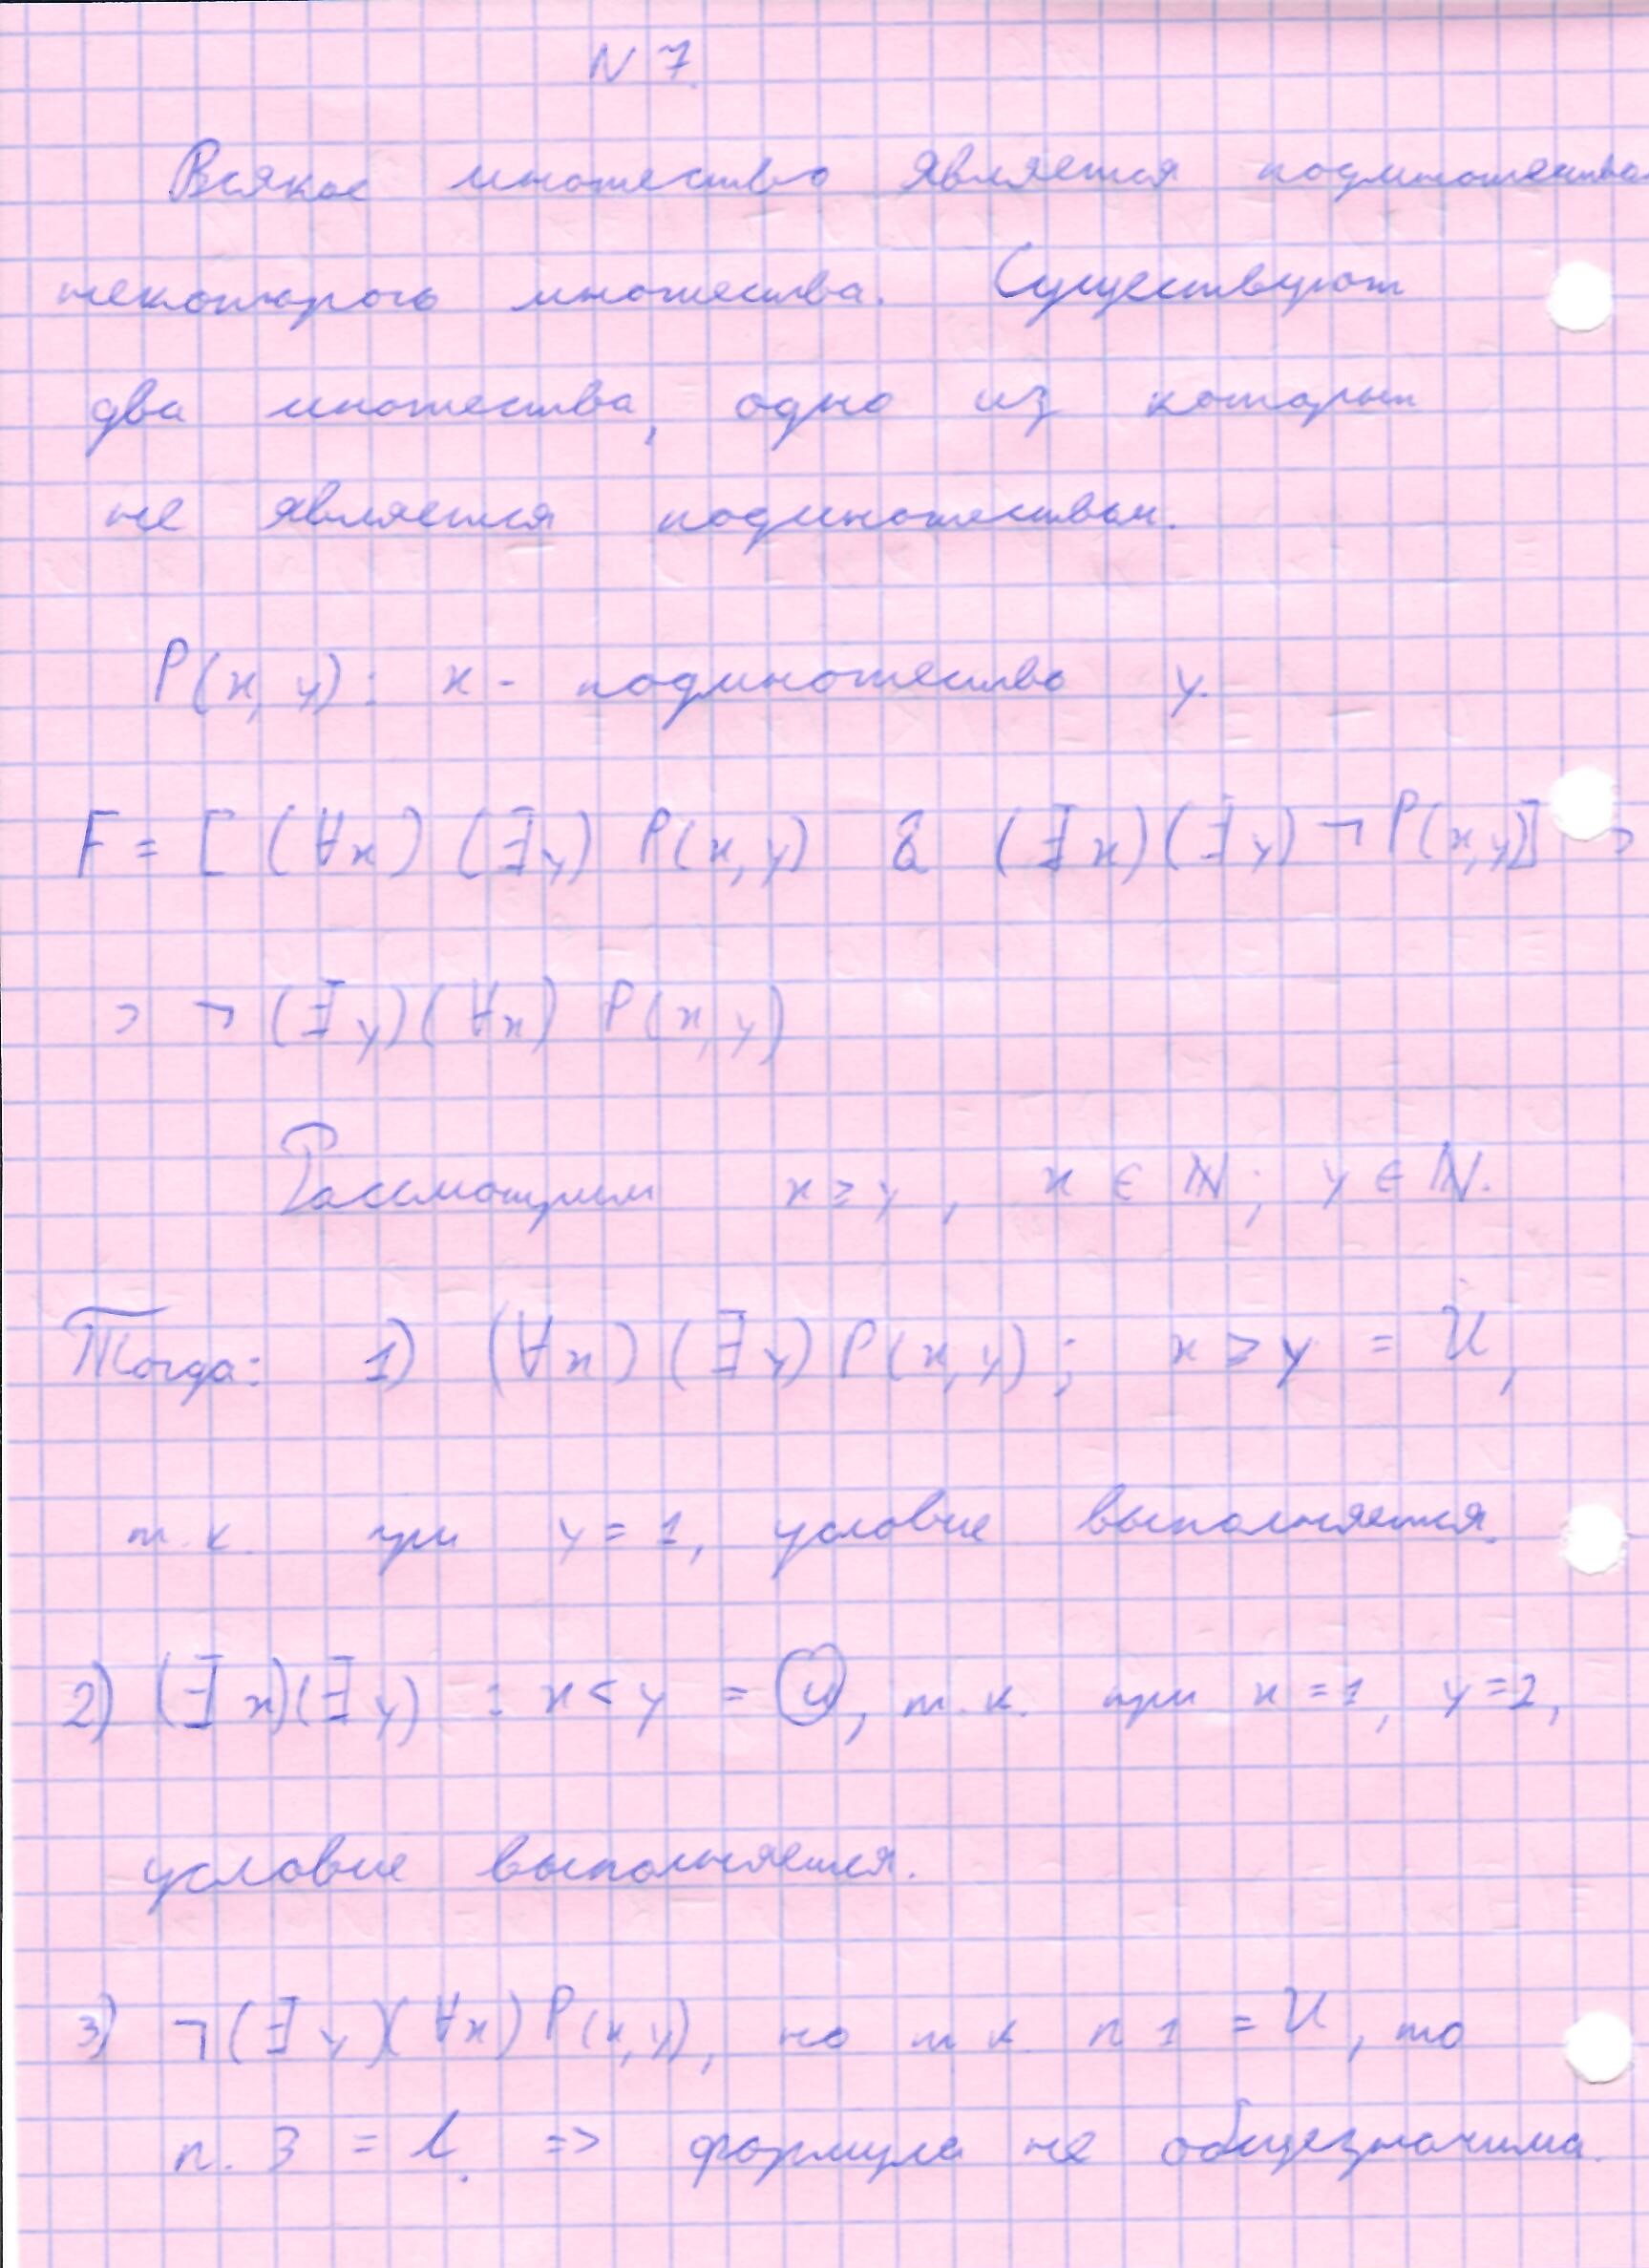 N 7.
Всякое множество является подмножество
некоторого множества. Существуют
два множества, одно из которых
не является подмножеством.
P(x, y): x - подмножество y.
F = [(∀x) (∃y) P(x, y) & (∃x)(∃y) ¬ P(x, y)] ⊃
⊃ ¬ (∃y)(∀x) P(x, y)
Рассмотрим x ≥ y, x ∈ ℕ; y ∈ ℕ.
Тогда: 1) (∀x) (∃y) P(x, y); x ≥ y = И,
т.к. при y = 1, условие выполняется.
2) (∃x)(∃y) : x < y = И, т.к. при x = 1, y = 2,
условие выполняется.
3) ¬(∃y)(∀x) P(x, y), но т к п 1 = И, то
п. 3 = Л. => формула не общезначима.